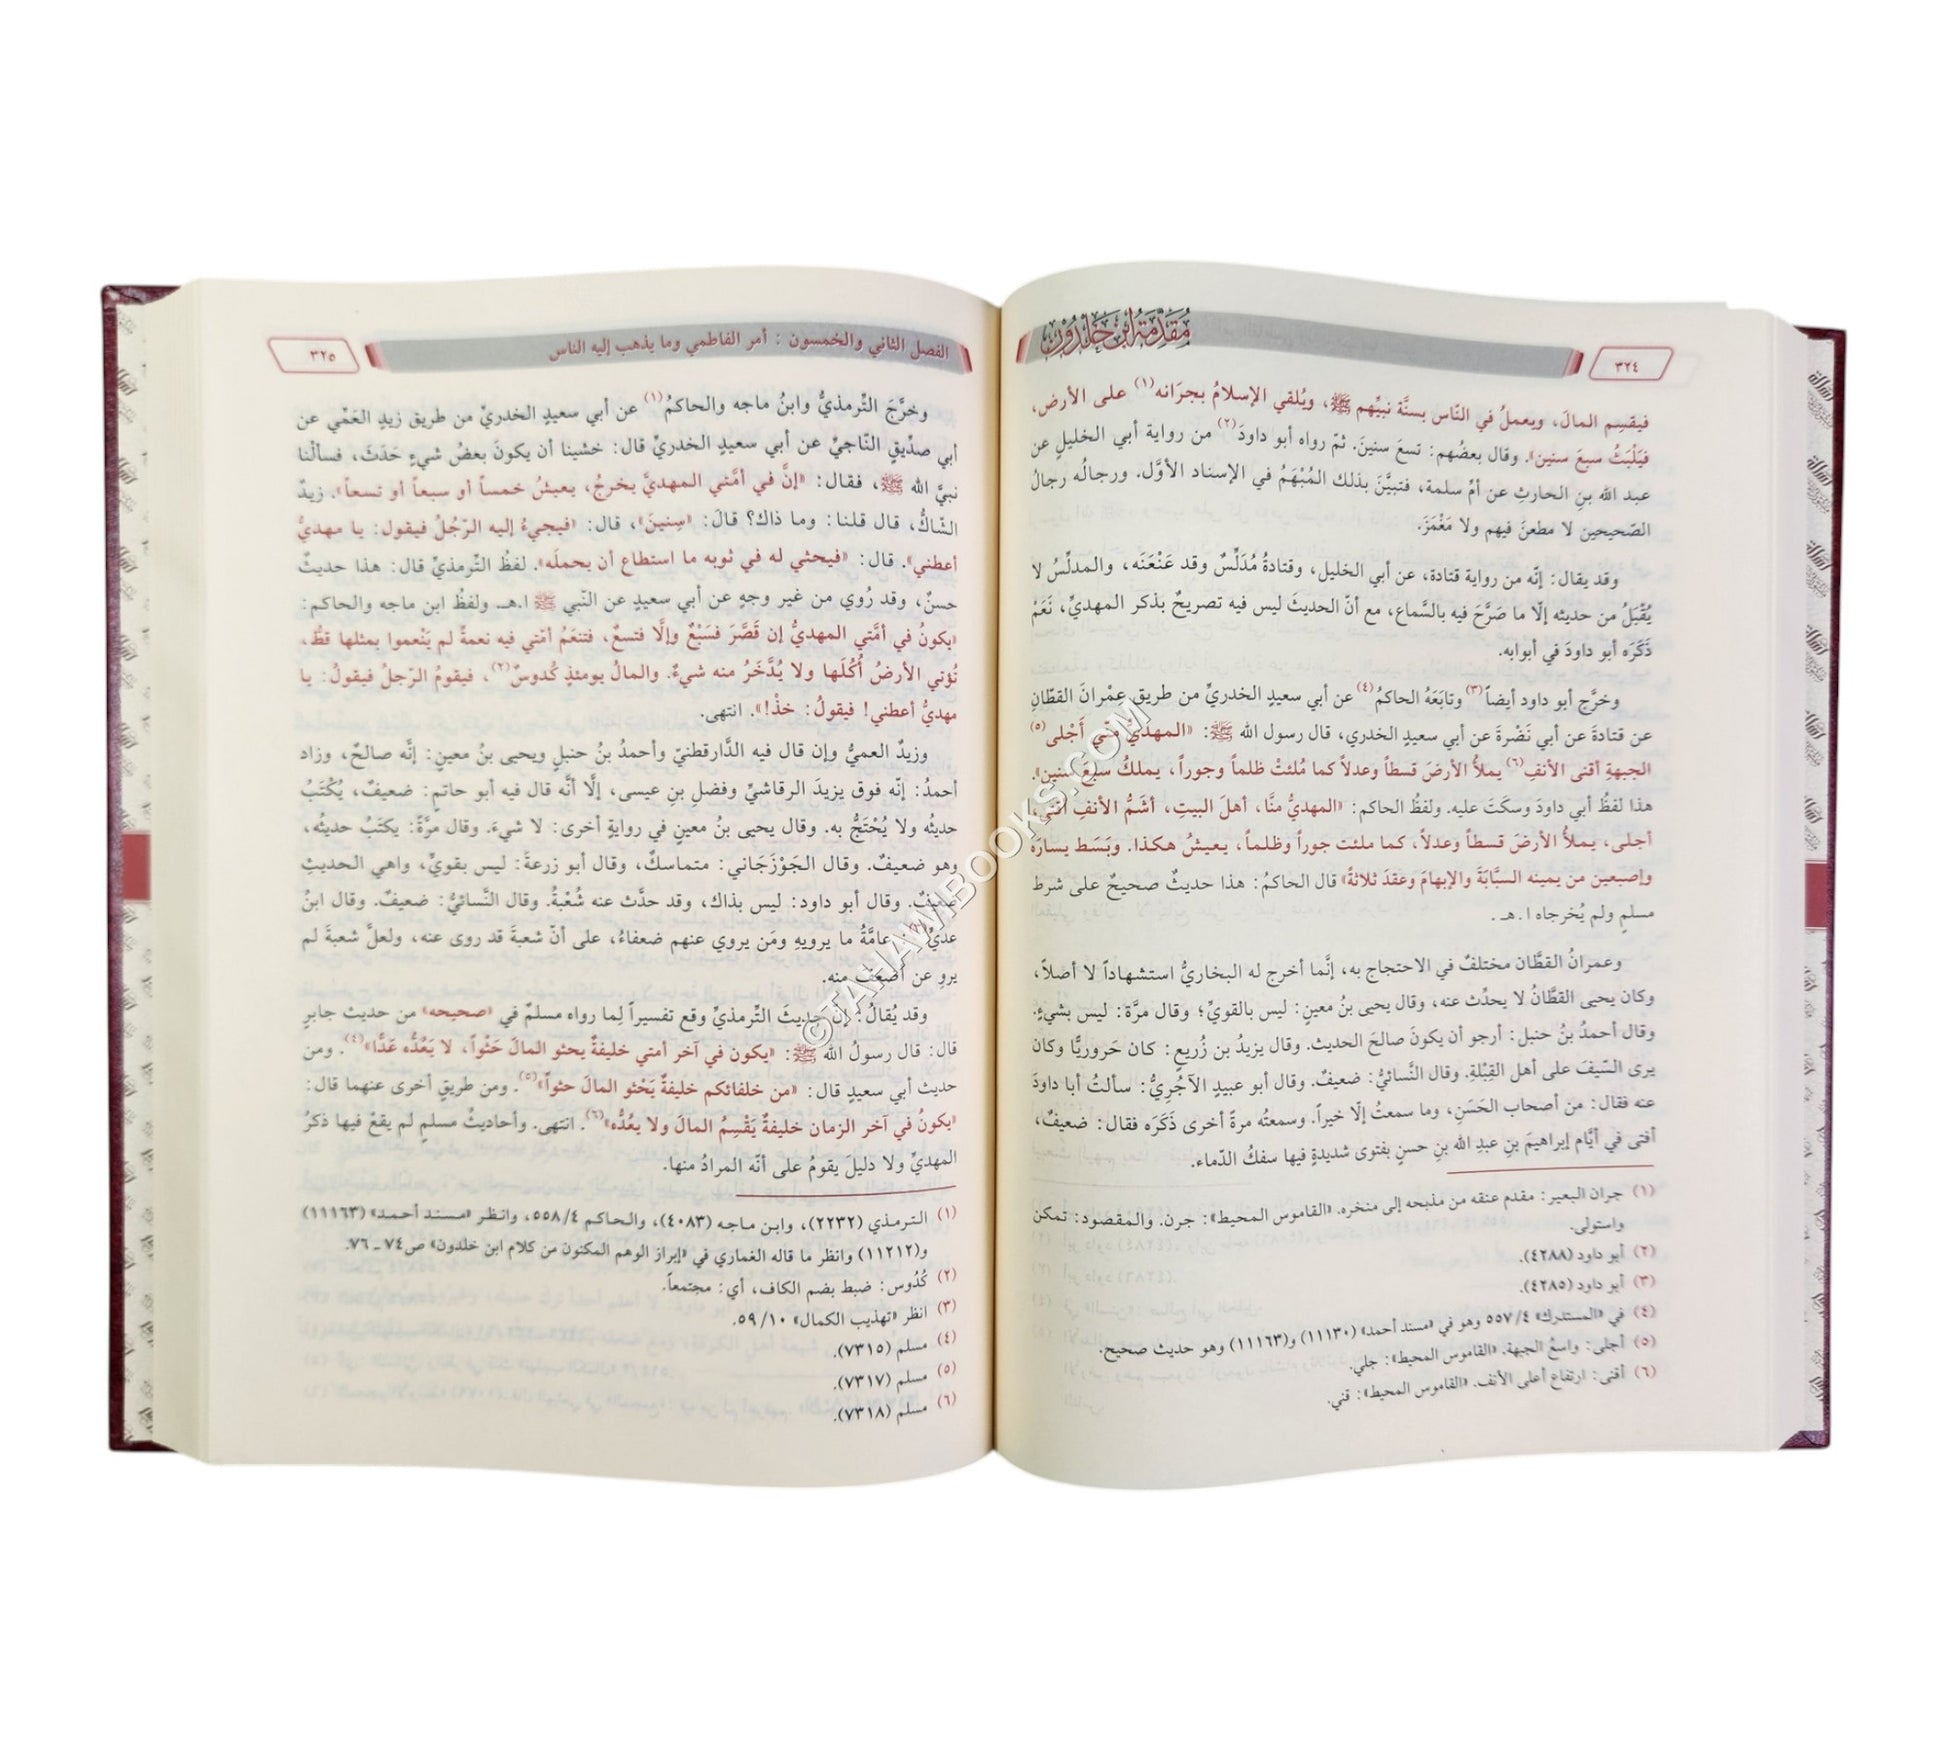 ٣٢٤
مقدمة ابن خلدون
فيقسِم المالَ، ويعملُ في النّاس بسنَّة نبيِّهم ﷺ، ويُلقي الإسلامُ بجرَانه(١) على الأرض،
فيَلْبَثُ سبعَ سنين». وقال بعضُهم: تسعَ سنينَ. ثمّ رواه أبو داودَ(٢) من رواية أبي الخليلِ عن
عبد الله بنِ الحارثِ عن أمِّ سلمة، فتبيَّنَ بذلك المُبْهَمُ في الإسناد الأوَّل. ورجالُه رجالُ
الصّحيحين لا مطعنَ فيهم ولا مَغْمَزَ.
وقد يقال: إنّه من رواية قتادة، عن أبي الخليل، وقتادةُ مُدَلِّسٌ وقد عَنْعَنَه، والمدلِّسُ لا
يُقْبَلُ من حديثه إلّا ما صَرَّحَ فيه بالسَّماع، مع أنّ الحديثَ ليس فيه تصريحٌ بذكر المهديِّ، نَعَمْ
ذَكَرَه أبو داودَ في أبوابه.
وخرَّج أبو داود أيضاً(٣) وتابَعَهُ الحاكمُ(٤) عن أبي سعيدٍ الخدريِّ من طريق عِمْرانَ القطّانِ
عن قتادةَ عن أبي نَضْرةَ عن أبي سعيدٍ الخدري، قال رسول الله ﷺ: «المهديُّ منّي أَجْلى(٥)
الجبهةِ أقنى الأنفِ(٦) يملأُ الأرضَ قسطاً وعدلاً كما مُلئتْ ظلماً وجوراً، يملكُ سبعَ سنين».
هذا لفظُ أبي داودَ وسكَتَ عليه. ولفظُ الحاكم: «المهديُّ منَّا، أهلَ البيتِ، أشَمُّ الأنفِ أقنى،
أجلى، يملأُ الأرضَ قسطاً وعدلاً، كما ملئت جوراً وظلماً، يعيشُ هكذا. وبَسَط يسارَه
وإصبعين من يمينه السبَّابَةَ والإبهامَ وعقدَ ثلاثةً» قال الحاكمُ: هذا حديثٌ صحيحٌ على شرط
مسلمٍ ولم يُخرجاه ا.هـ.
وعمرانُ القطّان مختلفٌ في الاحتجاج به، إنَّما أخرج له البخاريُّ استشهاداً لا أصلاً،
وكان يحيى القطَّانُ لا يحدِّث عنه، وقال يحيى بنُ معينٍ: ليس بالقويِّ؛ وقال مرَّة: ليس بشيءٍ.
وقال أحمدُ بنُ حنبل: أرجو أن يكونَ صالحَ الحديث. وقال يزيدُ بن زُريعٍ: كان حَروريًّا وكان
يرى السّيفَ على أهل القِبْلةِ. وقال النَّسائيُّ: ضعيفٌ. وقال أبو عبيدٍ الآجُرِيُّ: سألتُ أبا داودَ
عنه فقال: من أصحاب الحَسَنِ، وما سمعتُ إلّا خيراً. وسمعتُه مرةً أخرى ذَكَرَه فقال: ضعيفٌ،
أفتى في أيَّام إبراهيمَ بنِ عبدِ الله بنِ حسنٍ بفتوى شديدةٍ فيها سفكُ الدّماء.
(١) جران البعير: مقدم عنقه من مذبحه إلى منخره. «القاموس المحيط»: جرن. والمقصود: تمكن
واستولى.
(٢) أبو داود (٤٢٨٨).
(٣) أبو داود (٤٢٨٥).
(٤) في «المستدرك» ٤/ ٥٥٧ وهو في «مسند أحمد» (١١١٣٠) و(١١١٦٣) وهو حديث صحيح.
(٥) أجلى: واسعُ الجبهة. «القاموس المحيط»: جلي.
(٦) أقنى: ارتفاع أعلى الأنف. «القاموس المحيط»: قني.
الفصل الثاني والخمسون : أمر الفاطمي وما يذهب إليه الناس
٣٢٥
وخرَّجَ التِّرمذيُّ وابنُ ماجه والحاكمُ(١) عن أبي سعيدٍ الخدريِّ من طريق زيدٍ العَمِّي عن
أبي صدِّيقٍ النّاجيِّ عن أبي سعيدٍ الخدريِّ قال: خشينا أن يكونَ بعضُ شيءٍ حَدَثَ، فسألْنا
نبيَّ الله ﷺ، فقال: «إنَّ في أمَّتي المهديَّ يخرجُ، يعيشُ خمساً أو سبعاً أو تسعاً». زيدٌ
الشّاكُّ، قال قلنا: وما ذاك؟ قالَ: «سِنينَ»، قال: «فيجيءُ إليه الرّجُلُ فيقول: يا مهديُّ
أعطني». قال: «فيحثي له في ثوبه ما استطاع أن يحملَه». لفظُ التِّرمذيِّ قال: هذا حديثٌ
حسنٌ، وقد رُوي من غير وجهٍ عن أبي سعيدٍ عن النّبي ﷺ ا.هـ. ولفظُ ابن ماجه والحاكم:
«يكونُ في أمَّتي المهديُّ إن قَصَّرَ فسَبْعٌ وإلَّا فتسعٌ، فتنعَمُ أمّتي فيه نعمةً لم يَنْعموا بمثلها قطُّ،
تُؤتي الأرضُ أُكُلَها ولا يُدَّخَرُ منه شيءٌ. والمالُ يومئذٍ كُدوسٌ(٢)، فيقومُ الرّجلُ فيقولُ: يا
مهديُّ أعطني! فيقولُ: خذْ!». انتهى.
وزيدٌ العميُّ وإن قال فيه الدَّارقطنيّ وأحمدُ بنُ حنبلٍ ويحيى بنُ معينٍ: إنَّه صالحٌ، وزاد
أحمدُ: إنّه فوق يزيدَ الرقاشيِّ وفضلِ بنِ عيسى، إلَّا أنَّه قال فيه أبو حاتمٍ: ضعيفٌ، يُكْتَبُ
حديثُه ولا يُحْتَجُّ به. وقال يحيى بنُ معينٍ في روايةٍ أخرى: لا شيءَ. وقال مرَّةً: يكتَبُ حديثُه،
وهو ضعيفٌ. وقال الجَوْزَجَاني: متماسكٌ، وقال أبو زرعةَ: ليس بقويٍّ، واهي الحديثِ
ضعيفٌ. وقال أبو داود: ليس بذاك، وقد حدَّث عنه شُعْبةُ. وقال النَّسائيُّ: ضعيفٌ. وقال ابنُ
عديٍّ: عامَّةُ ما يرويهِ ومَن يروي عنهم ضعفاءُ، على أنّ شعبةَ قد روى عنه، ولعلَّ شعبةَ لم
يروِ عن أضعفَ منه.
وقد يُقالُ: إنَّ حديثَ التِّرمذيِّ وقع تفسيراً لِما رواه مسلمٌ في «صحيحه» من حديث جابرٍ
قال: قال رسولُ الله ﷺ: «يكون في آخر أمتي خليفةٌ يحثو المالَ حَثْواً، لا يَعُدُّه عَدًّا»(٤). ومن
حديث أبي سعيدٍ قال: «من خلفائكم خليفةٌ يَحْثو المالَ حثواً»(٥). ومن طريقٍ أخرى عنهما قال:
«يكونُ في آخر الزمان خليفةٌ يَقْسِمُ المالَ ولا يعُدُّه»(٦). انتهى. وأحاديثُ مسلمٍ لم يقعْ فيها ذكرُ
المهديِّ ولا دليلَ يقومُ على أنّه المرادُ منها.
(١) الترمذي (٢٢٣٢)، وابن ماجه (٤٠٨٣)، والحاكم ٤/ ٥٥٨، وانظر «مسند أحمد» (١١١٦٣)
و(١١٢١٢) وانظر ما قاله الغماري في «إبراز الوهم المكنون من كلام ابن خلدون» ص٧٤ ـ ٧٦.
(٢) كُدُوس: ضبط بضم الكاف، أي: مجتمعاً.
(٣) انظر «تهذيب الكمال» ١٠/ ٥٩.
(٤) مسلم (٧٣١٥).
(٥) مسلم (٧٣١٧).
(٦) مسلم (٧٣١٨).
©TAHAWIBOOKS.COM